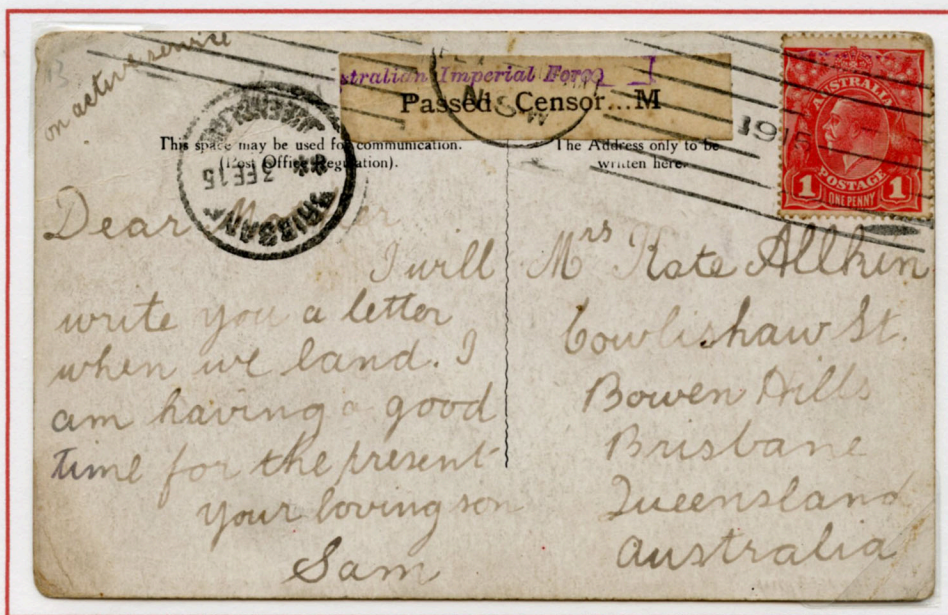 on active service
Australian Imperial Force
Passed Censor...M
This space may be used for communication.
(Post Office Regulation).
The Address only to be
written here.
BRISBANE
3 FE 15
QUEENSLAND
N.S.W
1915
AUSTRALIA
POSTAGE
1 ONE PENNY 1
Dear Mother
I will
write you a letter
when we land. I
am having a good
time for the present
your loving son
Sam
Mrs Kate Allkin
Cowlishaw St.
Bowen Hills
Brisbane
Queensland
Australia